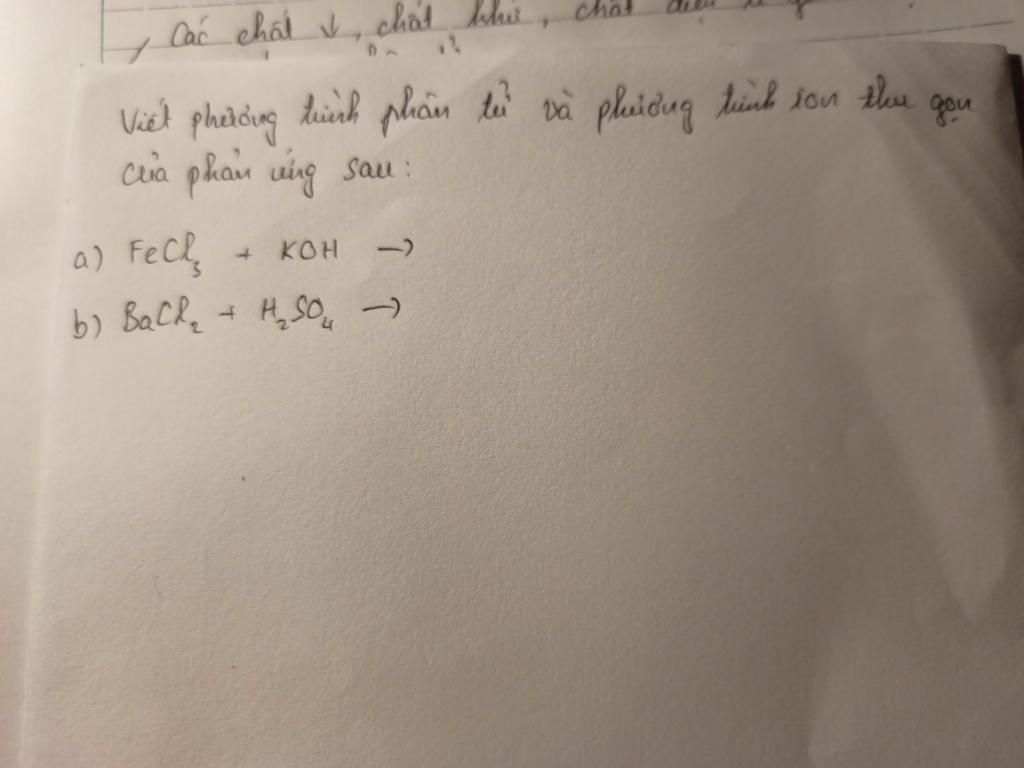 , Các chất ↓, chất khí, chất điện li
Viết phương trình phân tử và phương trình ion thu gọn
của phản ứng sau:
a) FeCl₃ + KOH →
b) BaCl₂ + H₂SO₄ →